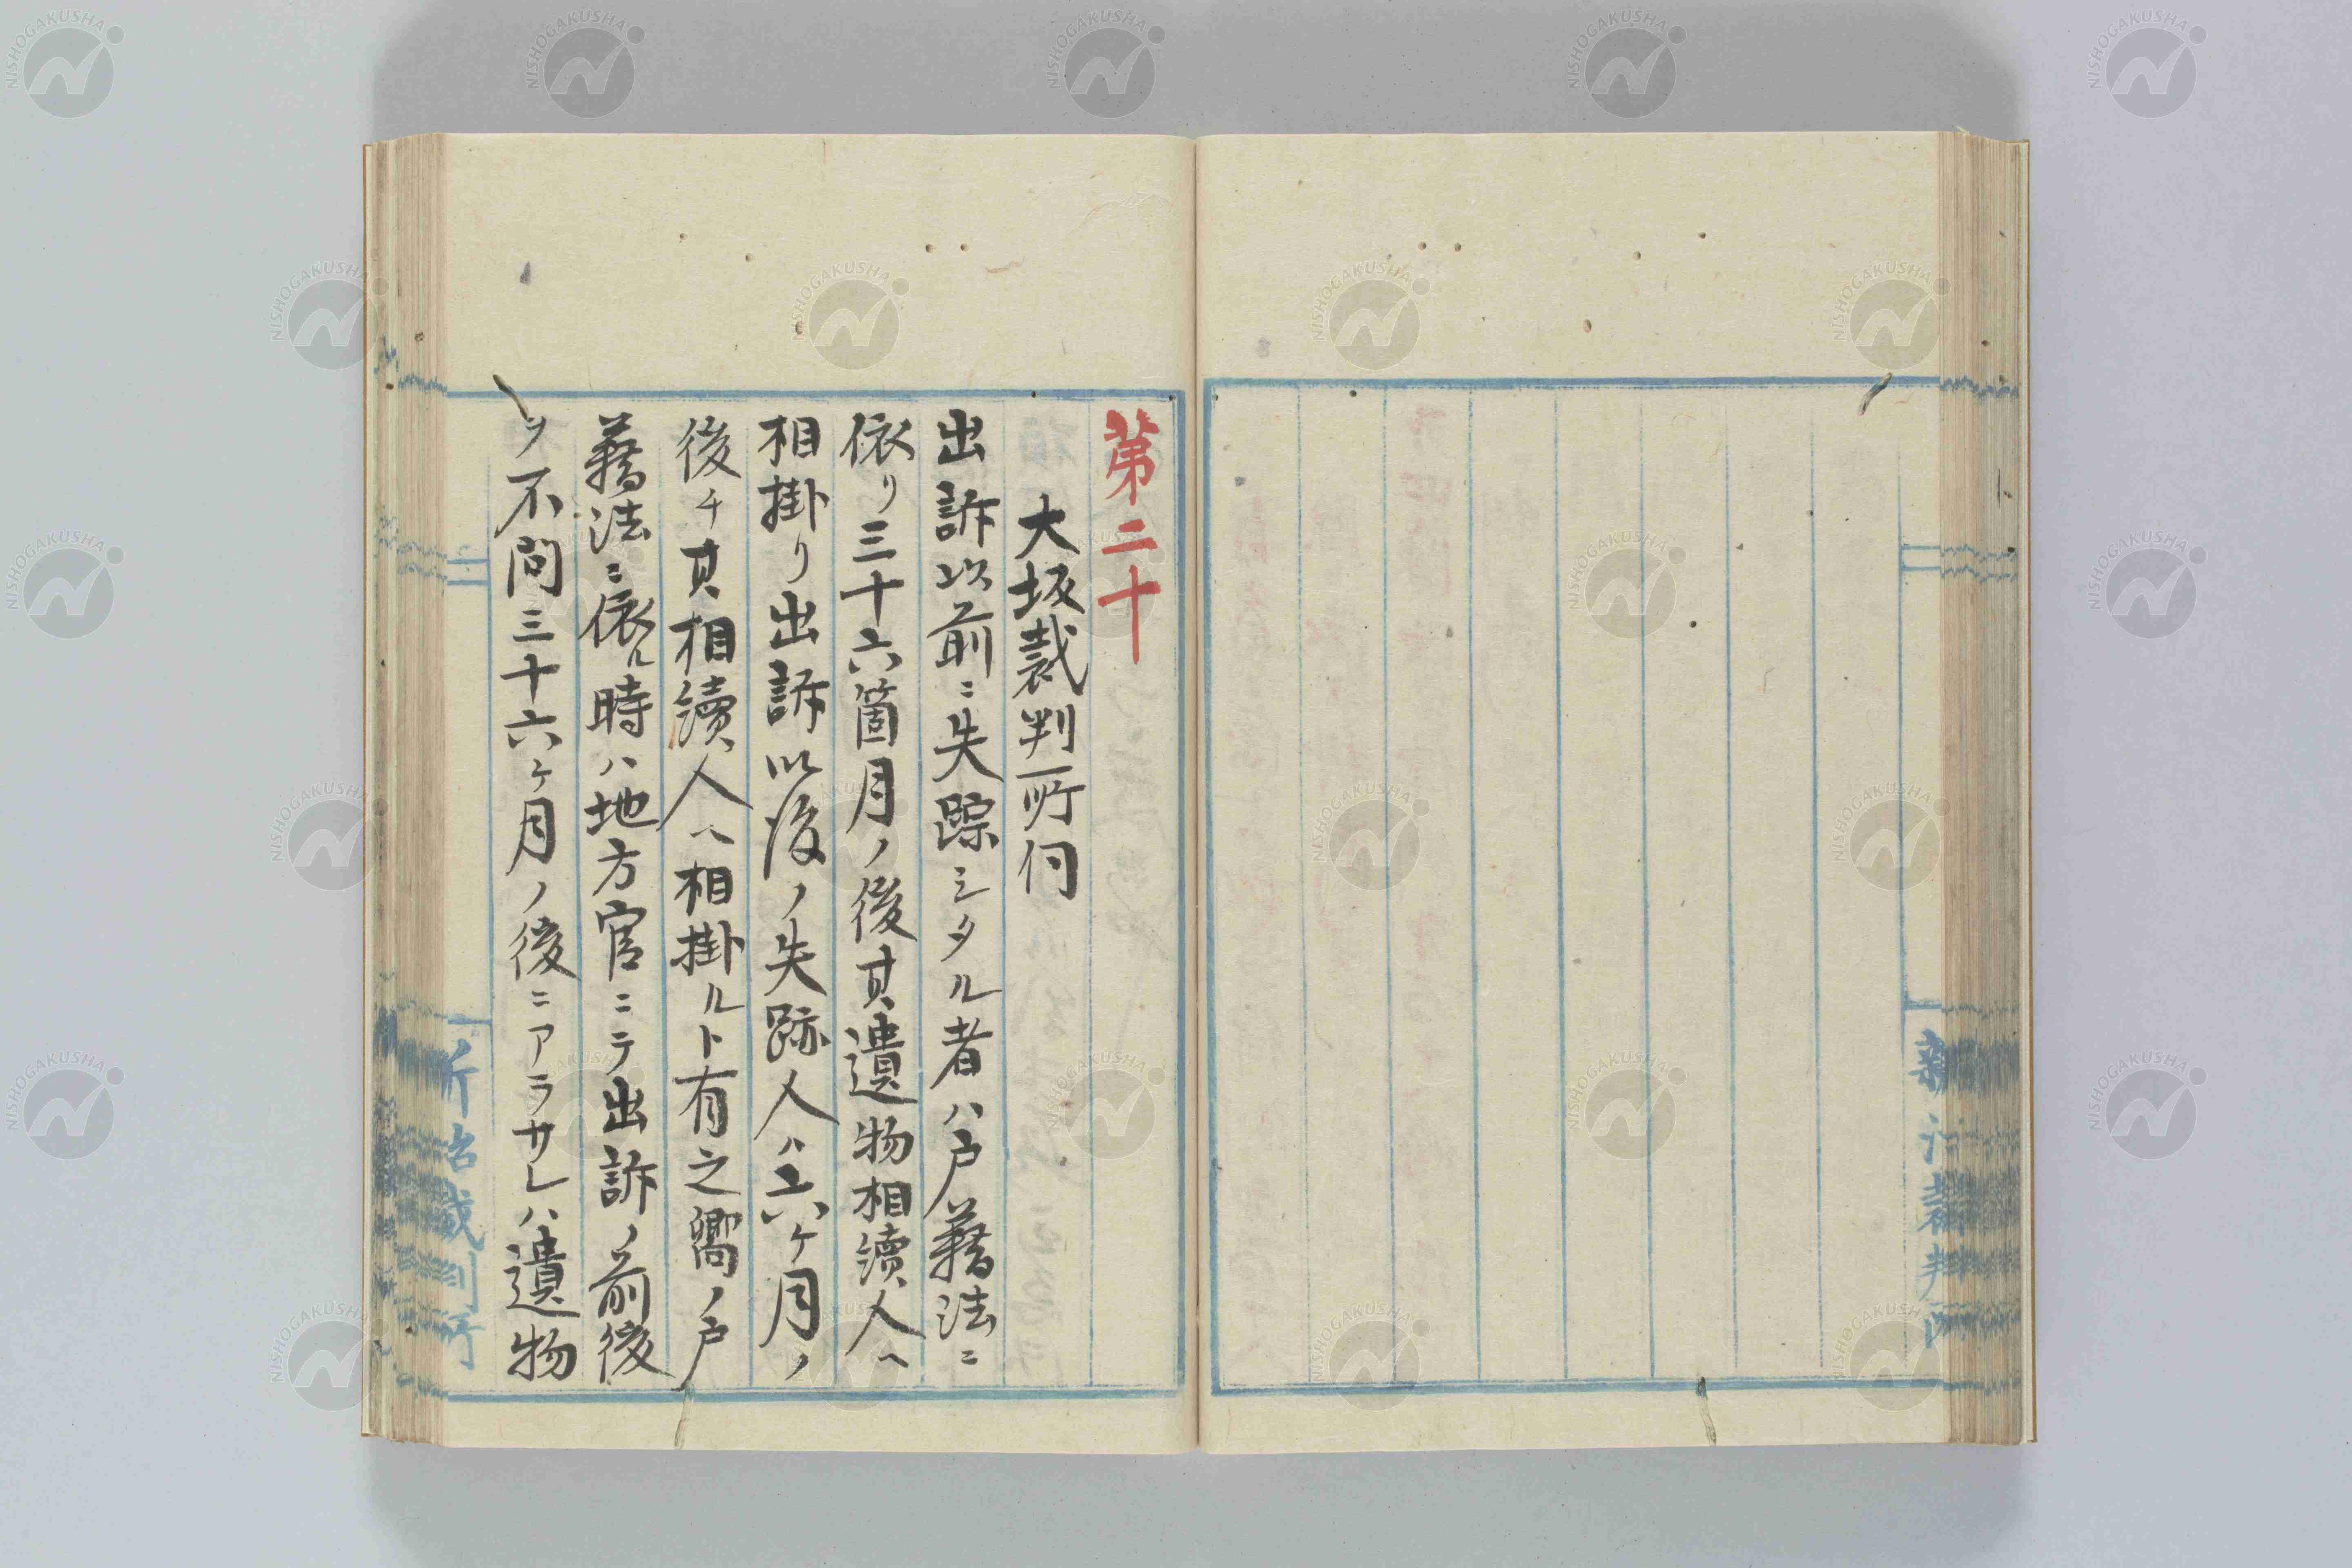 第二十
大坂裁判所伺
出訴以前ニ失踪シタル者ハ戸籍法ニ
依リ三十六箇月ノ後其遺物相續人ヘ
相掛リ出訴以後ノ失跡人ハ六ケ月ノ
後チ其相續人ヘ相掛ルト有之嚮ノ戸
籍法ニ依ル時ハ地方官ニテ出訴ノ前後
ヲ不問三十六ケ月ノ後ニアラサレハ遺物
新治裁判所
新治裁判所
NISHOGAKUSHA